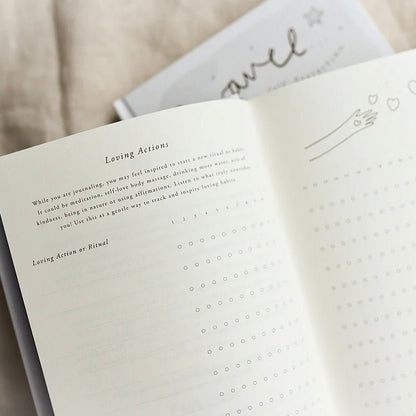 Loving Actions
While you are journaling, you may feel inspired to start a new ritual or habit.
It could be meditation, self-love body massage, drinking more water, acts of
kindness, being in nature or using affirmations. Listen to what truly nourishes
you! Use this as a gentle way to track and inspire loving habits.
1 2 3 4 5 6 7 8 9
Loving Action or Ritual